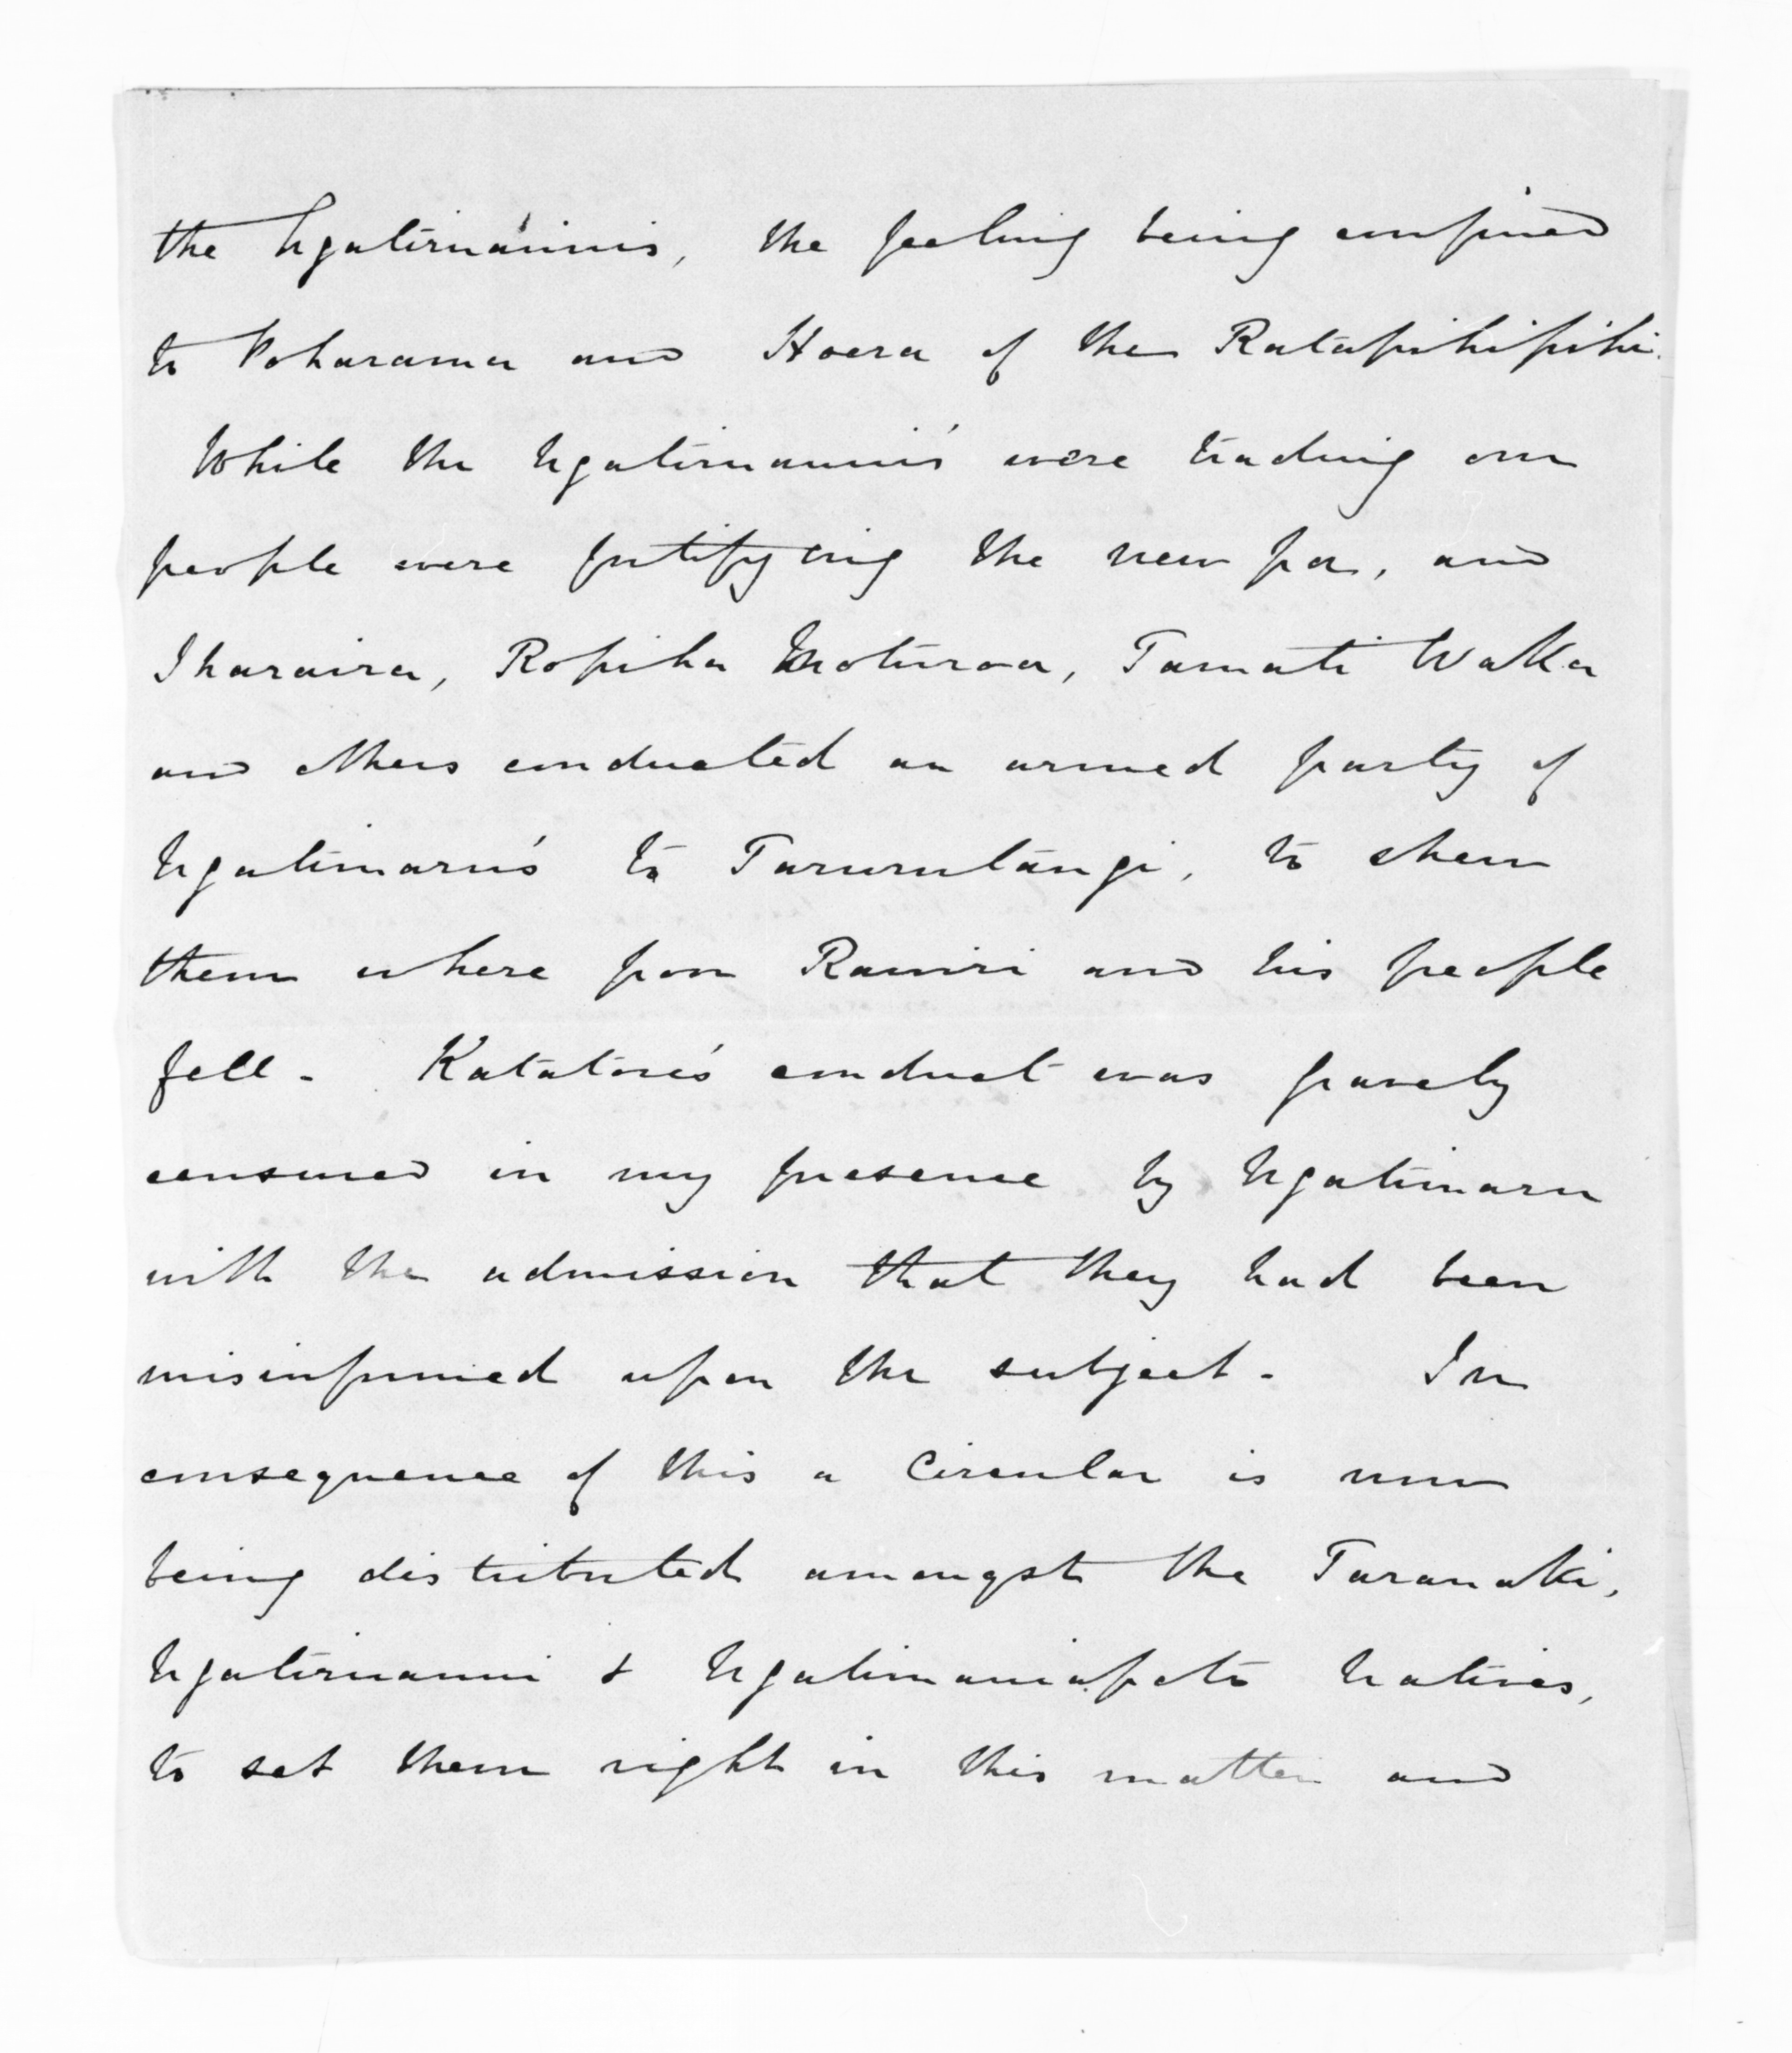 the Ngatiruanuis, the feeling being confined
to Poharama and Hoera of the Ratapihipihi.
While the Ngatiruanui's were trading our
people were fortifying the new pa, and
Iharaira, Ropiha Moturoa, Tamati Waka
and others conducted an armed party of
Ngatimaru's to Tarurutangi, to shew
them where poor Rawiri and his people
fell. Katatore's conduct was gravely
censured in my presence by Ngatimaru
with the admission that they had been
misinformed upon the subject. In
consequence of this a Circular is now
being distributed amongst the Taranaki,
Ngatiruanui & Ngatimaniapoto Natives,
to set them right in this matter and